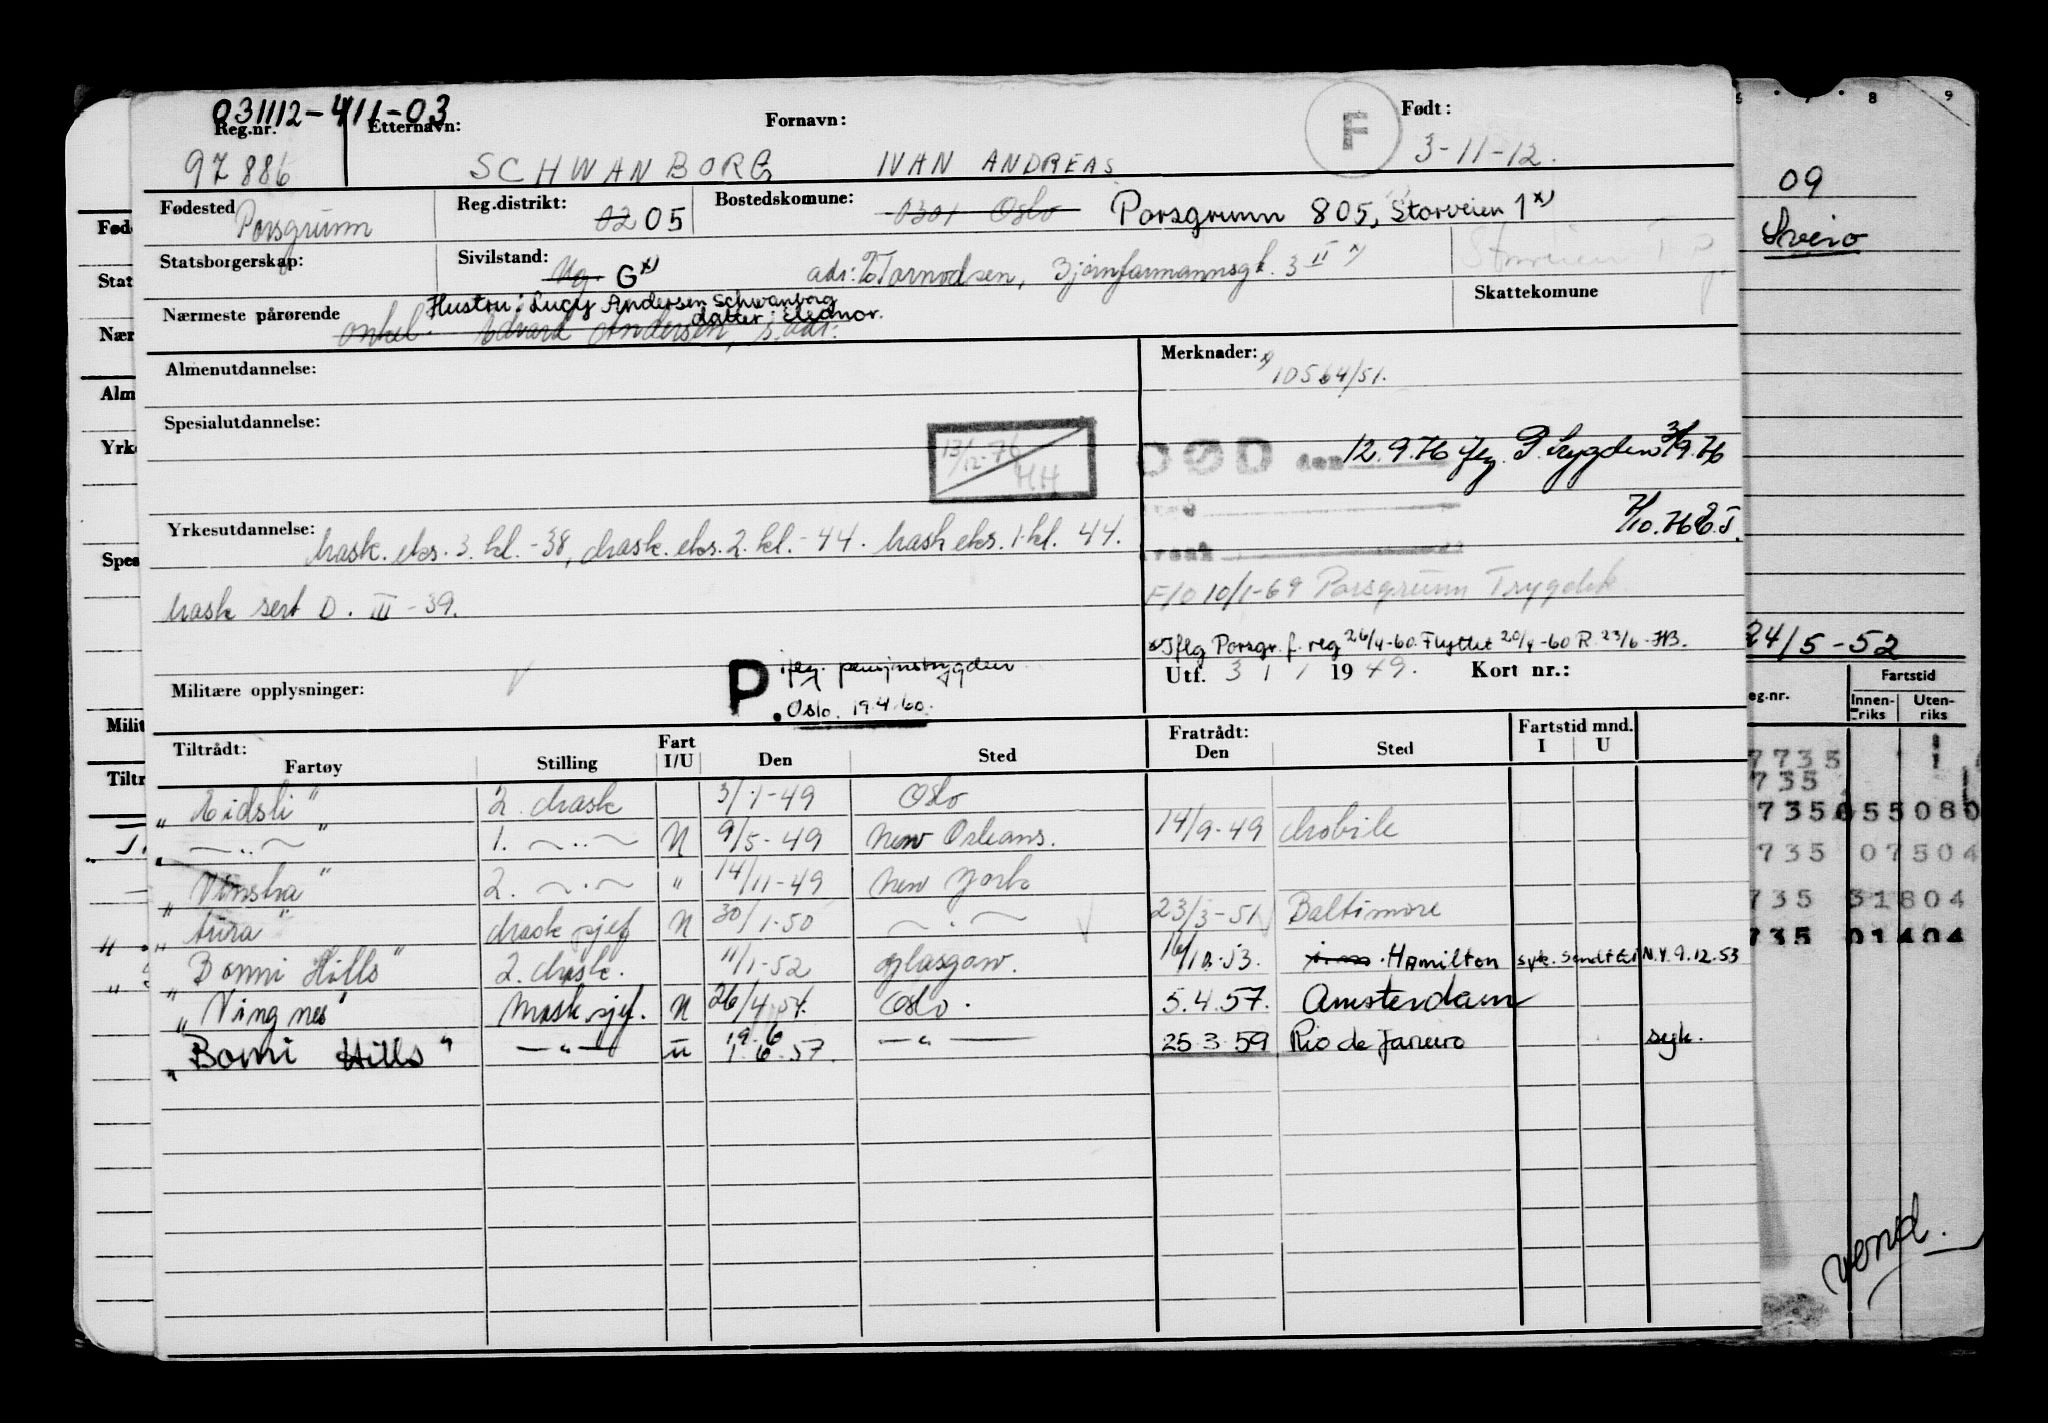 031112-411-03
Reg.nr. Etternavn: Fornavn: F Født:
97886 SCHWANBORG IVAN ANDREAS 3-11-12.
Fødested Porsgrunn Reg.distrikt: 02 05 Bostedskomune: 0301 Oslo Porsgrunn 805, Storveien 1 x)
Statsborgerskap: Sivilstand: Ug. G x) adr: Tornodsen, Bjørnfarmannsgt. 3 II x) Storveien 1
Skattekomune
Hustru: Lucy Andersen Schwanborg
datter: Eleanor.
Nærmeste pårørende onkel: Edvard Andersen, s. adr:
Almenutdannelse: Merknader: x) 10564/51.
Spesialutdannelse: 13/12-76 HH
DØD den 12.9.76 flg. P. trygden 3/9.76
7/10.76
Yrkesutdannelse: Mask. eks. 3. kl. -38, Mask. eks. 2. kl. -44. Mask eks. 1. kl. 44.
F/O 10/1-69 Porsgrunn Trygdek
Mask sert D. III -39.
x) Iflg Porsgr. f. reg 26/4-60. Flyttet 20/4-60 R. 23/6-HB.
P iflg. pensjonstrygden
Oslo. 19.4.60.
Militære opplysninger: Utf. 3 / 1 1949. Kort nr.:
Tiltrådt: Fratrådt: Fartstid mnd.
Fartøy Stilling Fart I/U Den Sted Den Sted I U
"Eidsli" 2. Mask 3/1-49 Oslo
" — " — " 1. — " — U 9/5-49 New Orleans. 14/9-49 Mobile
"Vinstra" 2. — " — " 14/11-49 New York
"Aura" Mask sjef U 30/1-50 — " — 23/3-51 Baltimore
"Bomi Hills" 2. Mask. 11/1-52 Glasgow. Hamilton syk. Sendt til N.Y. 9.12.53
"Vingnes" Mask. sjef. U 26/4 54. Oslo. 5.4.57. Amsterdam
"Bomi Hills" — " — U 19.6 1.6.57. — " — 25.3.59 Rio de Janeiro syk.
09
Sveio
24/5-52
eg.nr. Fartstid
Innen-riks Uten-riks
7735
735
735 055080
735 07504
735 31804
735 01404
vend.
Fød
Stat
Nær
Alm
Yrk
Spes
Milit
Tiltr
8 9